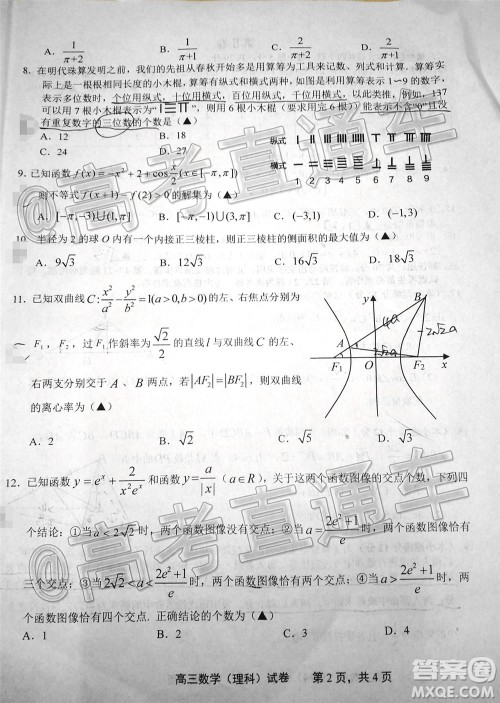 A. 1/π  B. 1/(π+1)  C. 2/(π+2)  D. 1/(π+1)
8. 在明代珠算发明之前，我们的先祖从春秋开始多是用算筹为工具来记数、列式和计算。算筹实
际上是一根根相同长度的小木棍，算筹有纵式和横式两种，如图是利用算筹表示1~9的
数字，表示多位数时，个位用纵式，十位用横式，百位用纵式，千位用横式，以此类推，例如，137
可以用7根小木棍表示"
则用6根小木棍（要求用6根）能表示不含"0"且没
有重复数字的三位数的个数是（▲）
A. 12  B. 18
C. 24  D. 27
纵式
横式
1 2 3 4 5 6 7 8 9
9. 已知函数f(x)=-x²+2+cos(x/2)(x∈[-π,π])，
则不等式f(x+1)-f(2)>0的解集为（▲）
A. [-π,-3)∪(1,π]
D. (-1,3)
10. 半径为2的球O内有一个内接正三棱柱，则正三棱柱的侧面积的最大值为（▲）
A. 9√3  B. 12√3  C. 16√3  D. 18√3
11. 已知双曲线C: x²/a²-y²/b²=1(a>0,b>0)的左、右焦点分别为
F₁，F₂，过F₁作斜率为√2/2的直线l与双曲线C的左、
右两支分别交于A、B两点，若|AF₂|=|BF₂|，则双曲线
的离心率为（▲）
A. 2  B. √2  C. √5  D. √3
y
B
4a
2√2a
A
2√2a
F₁ O F₂ x
12. 已知函数y=eˣ+2/(x²eˣ)和函数y=a/|x|（a∈R），关于这两个函数图像的交点个数，下列四
个结论：①当a<2√2时，两个函数图像没有交点；②当a=(2e²+1)/e时，两个函数图像恰有
三个交点；③当2√2<a<(2e²+1)/e时，两个函数图像恰有两个交点；④当a>(2e²+1)/e时，
两个函数图像恰有四个交点. 正确结论的个数为（▲）
A. 1  B. 2  C. 3  D. 4
高三数学（理科）试卷  第2页，共4页
@高考直通车
@高考直通车
答案圈
MXQE.COM